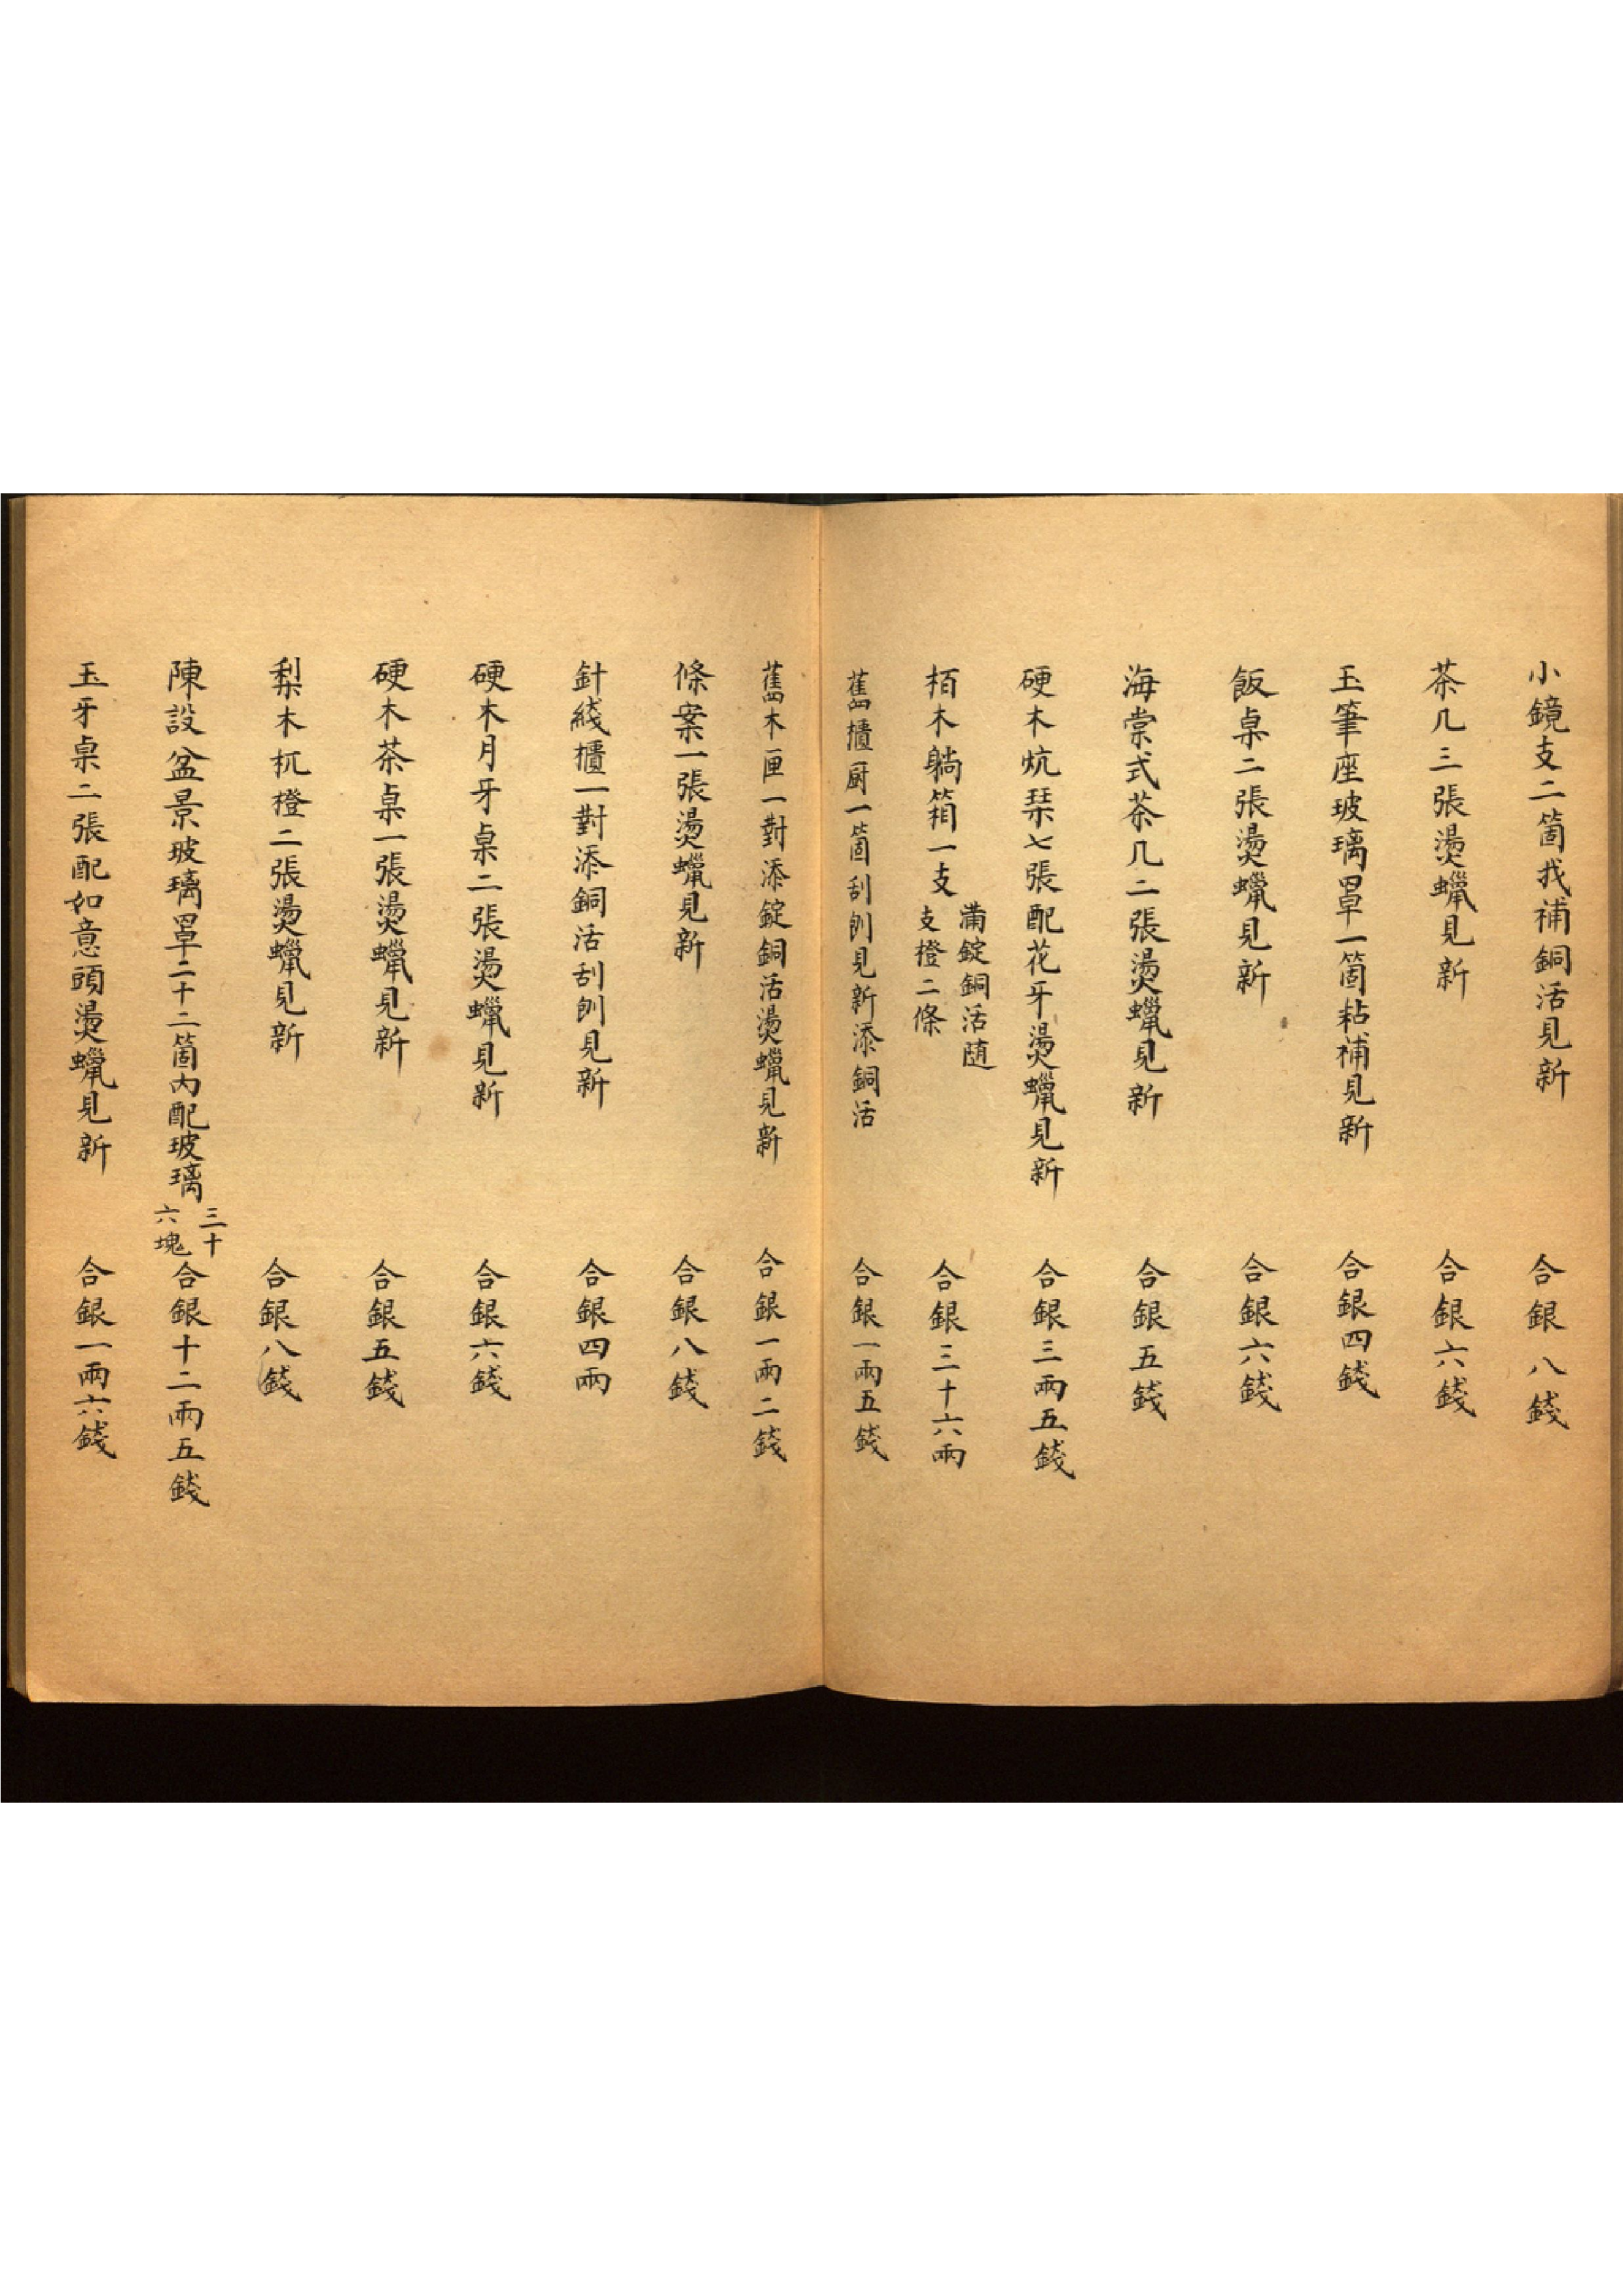 小鏡支二箇找補銅活見新 合銀八錢
茶几三張燙蠟見新 合銀六錢
玉筆座玻璃罩一箇粘補見新 合銀四錢
飯桌二張燙蠟見新 合銀六錢
海棠式茶几二張燙蠟見新 合銀五錢
硬木炕琹七張配花牙燙蠟見新 合銀三兩五錢
栢木躺箱一支 滿錠銅活随 支橙二條 合銀三十六兩
舊櫃厨一箇刮刨見新添銅活 合銀一兩五錢
舊木匣一對添錠銅活燙蠟見新 合銀一兩二錢
條案一張燙蠟見新 合銀八錢
針綫櫃一對添銅活刮刨見新 合銀四兩
硬木月牙桌二張燙蠟見新 合銀六錢
硬木茶桌一張燙蠟見新 合銀五錢
梨木杌橙二張燙蠟見新 合銀八錢
陳設盆景玻璃罩二十二箇內配玻璃 三十 六塊 合銀十二兩五錢
玉牙桌二張配如意頭燙蠟見新 合銀一兩六錢